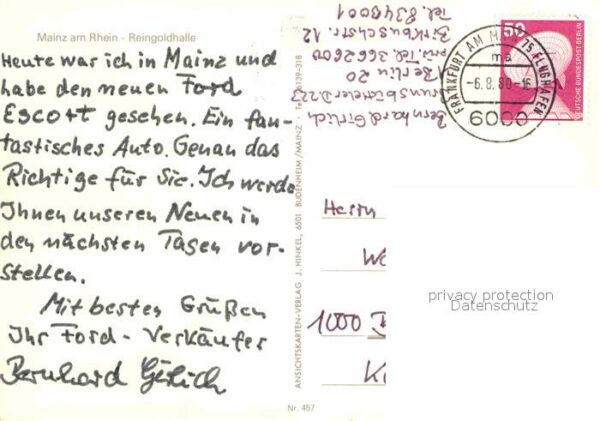 Mainz am Rhein - Reingoldhalle
Heute war ich in Mainz und
habe den neuen Ford
Escort gesehen. Ein fan-
tastisches Auto. Genau das
Richtige für Sie. Ich werde
Ihnen unseren Neuen in
den nächsten Tagen vor-
stellen.
Mit besten Grüßen
Ihr Ford-Verkäufer
Bernhard Girlich
Nr. 457
ANSICHTSKARTEN-VERLAG J. HINKEL, 6501 BUDENHEIM/MAINZ - 06139-318
Bernhard Girlich
D. 223
Berlin 20
priv. Tel. 3662600
Birkbuschstr. 12
Tel. 8348001
FRANKFURT AM 75 FLUGHAFEN
ma
-6.8.80-16
6000
50
DEUTSCHE BUNDESPOST BERLIN
Herrn
1000
privacy protection
Datenschutz